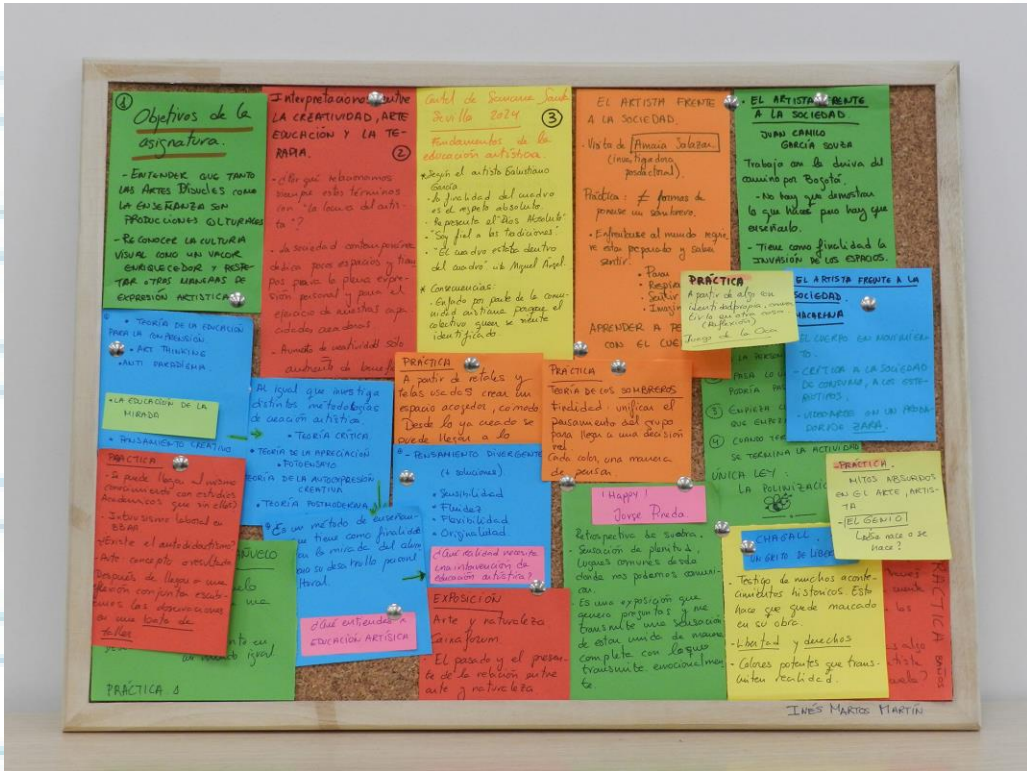 ①
Objetivos de la
asignatura.
- ENTENDER QUE TANTO
LAS ARTES VISUALES COMO
LA ENSEÑANZA SON
PRODUCCIONES CULTURALES
- RECONOCER LA CULTURA
VISUAL COMO UN VALOR
ENRIQUECEDOR Y RESPE-
TAR OTRAS MANERAS DE
EXPRESIÓN ARTÍSTICA
Interpretaciones entre
LA CREATIVIDAD, ARTE
EDUCACIÓN Y LA TE-
RAPIA.
②
- ¿Por qué relacionamos
siempre estos términos
con "La locura del artis-
ta"?
- La sociedad contemporánea
dedica pocos espacios y tiem
pos para la plena expre-
sión personal y para el
ejercicio de nuestras capa
cidades creadoras.
- Aumento de creatividad sólo
aumento de
Cartel de Semana Santa
Sevilla 2024
③
Fundamentos de la
educación artística.
* Según el artista Salustiano
García
- La finalidad del cuadro
es el respeto absoluto.
- Representa el "Dios Absoluto"
- "Soy fiel a las tradiciones".
- "El cuadro estaba dentro
del cuadro" Miguel Ángel.
* Consecuencias:
- Enfado por parte de la comu-
nidad cristiana porque el
colectivo queer se siente
identificado
EL ARTISTA FRENTE
A LA SOCIEDAD.
- Visita de Amaia Salazar.
(investigadora
posdoctoral).
Práctica: ≠ formas de
ponerse un sombrero.
- Enfrentarse al mundo requie
re estar preparado y saber
sentir.
• Parar
• Respira
• Sentir
• Imagin
APRENDER A
CON EL
• EL ARTISTA FRENTE
A LA SOCIEDAD
JUAN CAMILO
GARCÍA SOUZA
Trabajo con la deriva del
camino por Bogotá.
- No hay que demostrar
lo que hace pero hay que
enseñarlo.
- Tiene como finalidad la
INVASIÓN DE LOS ESPACIOS.
PRÁCTICA
A partir de algo con
identidad propia,
en otra cosa.
(Reflexión)
Juego de la Oca
EL ARTISTA FRENTE A LA
SOCIEDAD
MACARENA
- EL CUERPO EN MOVIMIEN-
TO.
- CRÍTICA A LA SOCIEDAD
DE CONSUMO, A LOS ESTE-
REOTIPOS,
- VIDEOARTE EN UN PROBA-
DOR DE ZARA.
• TEORÍA DE LA EDUCACIÓN
PARA LA COMPRENSIÓN
• ART THINKING
• ANTI PARADIGMA
• LA EDUCACIÓN DE LA
MIRADA
• PENSAMIENTO CREATIVO
Al igual que investiga
distintas metodologías
de creación artística.
• TEORÍA CRÍTICA.
• TEORÍA DE LA APRECIACIÓN
• FOTOENSAYO
TEORÍA DE LA AUTOEXPRESIÓN
CREATIVA
• TEORÍA POSTMODERNA
* Es un método de enseñan-
tiene como finalidad
la mirada del
su desarrollo personal
PRÁCTICA
A partir de retales y
telas usadas crear un
espacio acogedor, cómodo
Desde lo ya creado se
puede llegar a lo
PRÁCTICA
TEORÍA DE LOS SOMBREROS
Finalidad: unificar el
pensamiento del grupo
para llegar a una decisión
Cada color, una manera
de pensar.
LA PERSON
PASA LO
PODRÍA
③ EMPIEZA
QUE
④ CUANDO
SE TERMINA LA ACTIVIDAD
ÚNICA LEY:
LA POLINIZACIÓ
PRÁCTICA.
MITOS ABSURDOS
EN EL ARTE, ARTIS-
TA
- EL GENIO
¿Se nace o se
hace?
PRÁCTICA
- Se puede llegar al mismo
conocimiento con estudios
Académicos que sin ellos)
- Intrusismo laboral en
BBAA
¿Existe el autodidactismo?
- Arte concepto o resultado
Después de llegar a una
conjunta escribi-
mos las observaciones
en una
taller
ÑUELO
igual
PRÁCTICA 1
¿Qué entiendes x
EDUCACIÓN ARTÍSTICA
- PENSAMIENTO DIVERGENTE
(+ soluciones)
• Sensibilidad
• Fluidez
• Flexibilidad
• Originalidad.
¿Qué realidad necesita
una intervención de
educación artística?
EXPOSICIÓN
Arte y naturaleza
Caixaforum.
- El pasado y el presen-
te de la relación entre
arte y naturaleza
! Happy !
Jorge Pineda.
Retrospectiva de su obra.
- Sensación de plenitud,
Lugares comunes desde
donde nos podemos comuni-
car.
- Es una exposición que
genera preguntas y me
transmite una sensación
de estar unida de manera
completa con lo que
transmite emocionalmen
te.
CHAGALL.
UN GRITO DE LIBER
- Testigo de muchos aconte-
cimientos históricos. Esto
hace que quede marcado
en su obra.
- Libertad y derechos
- Colores potentes que trans-
miten realidad.
PRÁCTICA
INÉS MARTOS MARTÍN